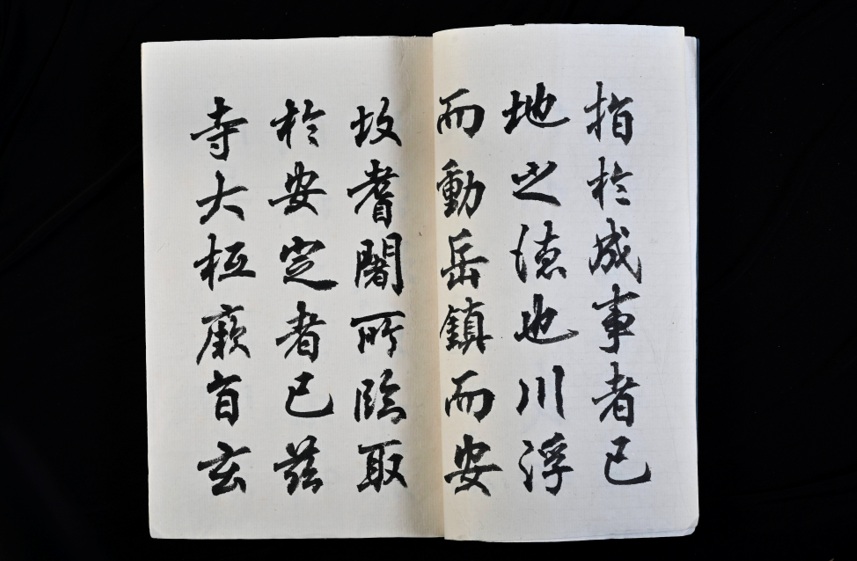 指於成事者已
地之德也川浮
而動岳鎮而安
故耆闍所臨取
於安定者已茲
寺大抵厥旨玄